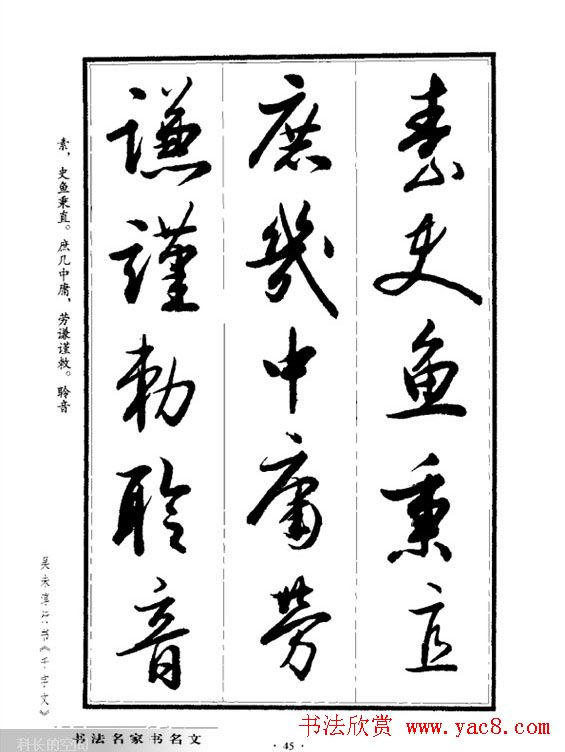 素史鱼秉直
庶幾中庸劳
謙謹勅聆音
素，史鱼秉直。庶几中庸，劳谦谨敕。聆音
吴未淳行书《千字文》
书法名家书名文
· 45 ·
科长的空间
书法欣赏 www.yac8.com